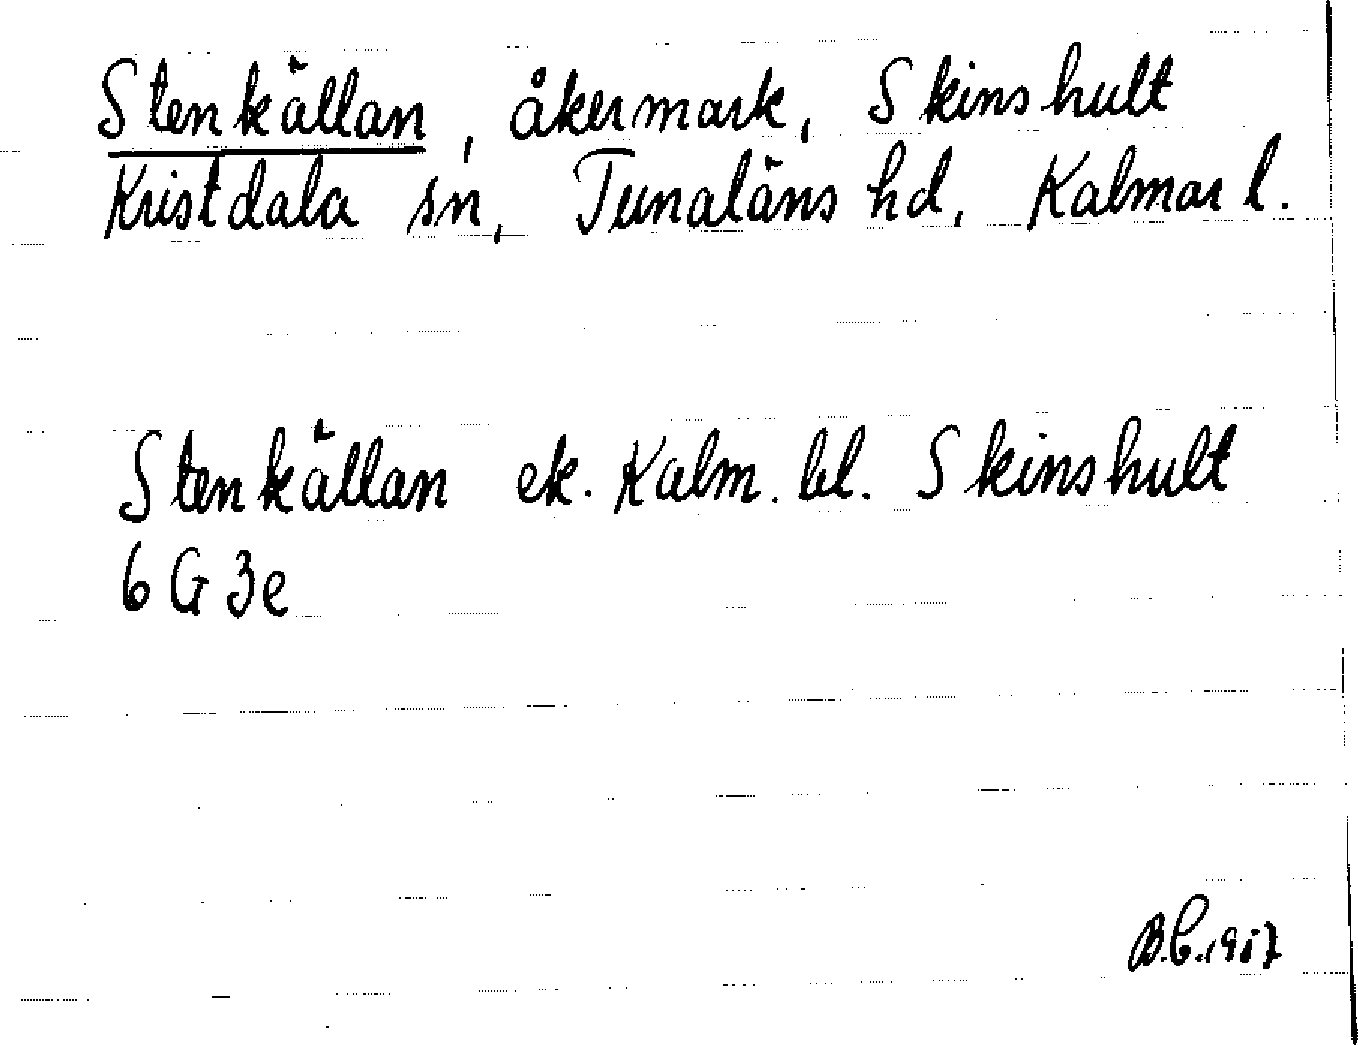 Stenkällan, åkermark, Skinshult
Kristdala sn, Tunaläns hd, Kalmar l.
Stenkällan ek. Kalm. bl. Skinshult
6G3e